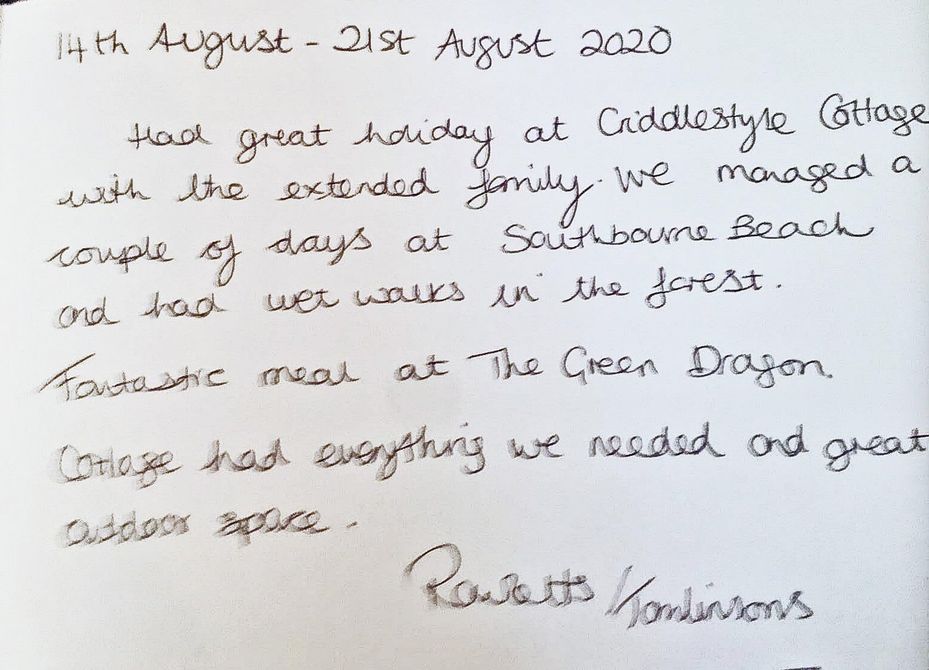 14th August - 21st August 2020
Had great holiday at Criddlestyle Cottage
with the extended family. We managed a
couple of days at Southbourne Beach
and had wet walks in the forest.
Fantastic meal at The Green Dragon.
Cottage had everything we needed and great
outdoor space.
/Tomlinsons